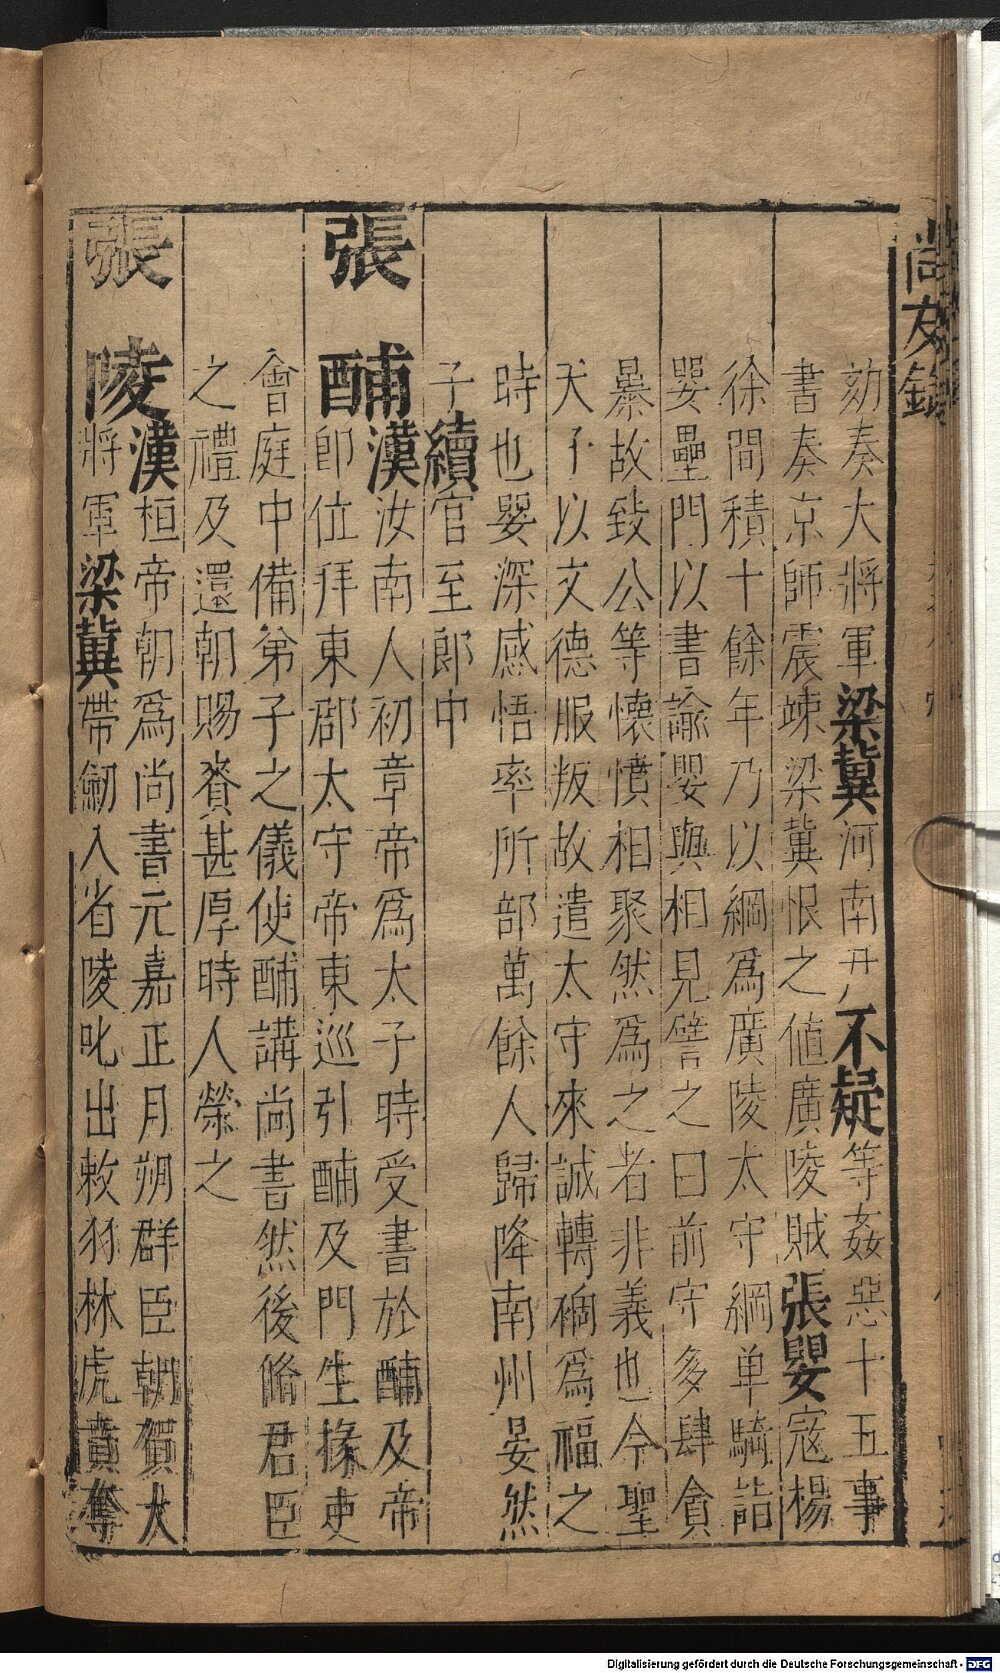 尚友錄
劾奏大將軍梁冀河南尹不疑等姦惡十五事
書奏京師震竦梁冀恨之値廣陵賊張嬰寇楊
徐間積十餘年乃以綱爲廣陵太守綱单騎詣
嬰壘門以書諭嬰與相見譬之曰前守多肆貪
暴故致公等懐憤相聚然爲之者非義也今聖
天子以文德服叛故遣太守來誠轉禍爲福之
時也嬰深感悟率所部萬餘人歸降南州晏然
子續官至郎中
張酺漢汝南人初章帝爲太子時受書於酺及帝
即位拜東郡太守帝東巡引酺及門生掾吏
會庭中備弟子之儀使酺講尚書然後脩君臣
之禮及還朝賜賚甚厚時人榮之
張陵漢桓帝朝爲尚書元嘉正月朔群臣朝賀大
將軍梁冀帶劒入省陵叱出敕羽林虎賁奪
Digitalisierung gefördert durch die Deutsche Forschungsgemeinschaft - DFG